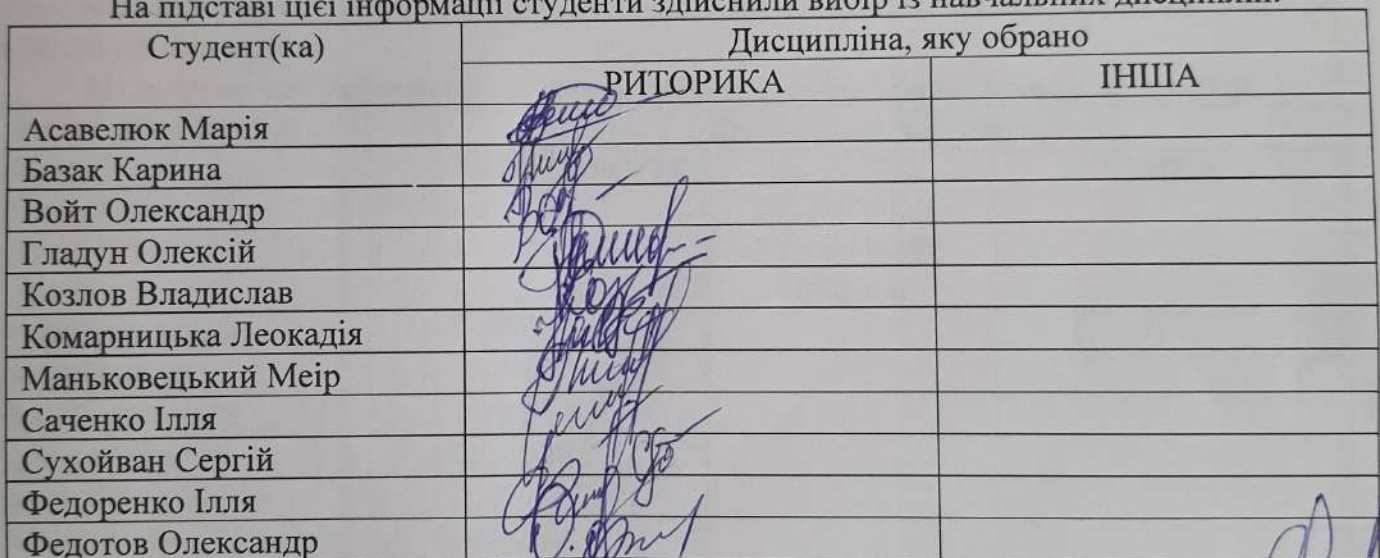 На підставі цієї інформації студенти здійснили вибір із навчальних дисциплін:
Студент(ка) Дисципліна, яку обрано
РИТОРИКА ІНША
Асавелюк Марія
Базак Карина
Войт Олександр
Гладун Олексій
Козлов Владислав
Комарницька Леокадія
Маньковецький Меір
Саченко Ілля
Сухойван Сергій
Федоренко Ілля
Федотов Олександр